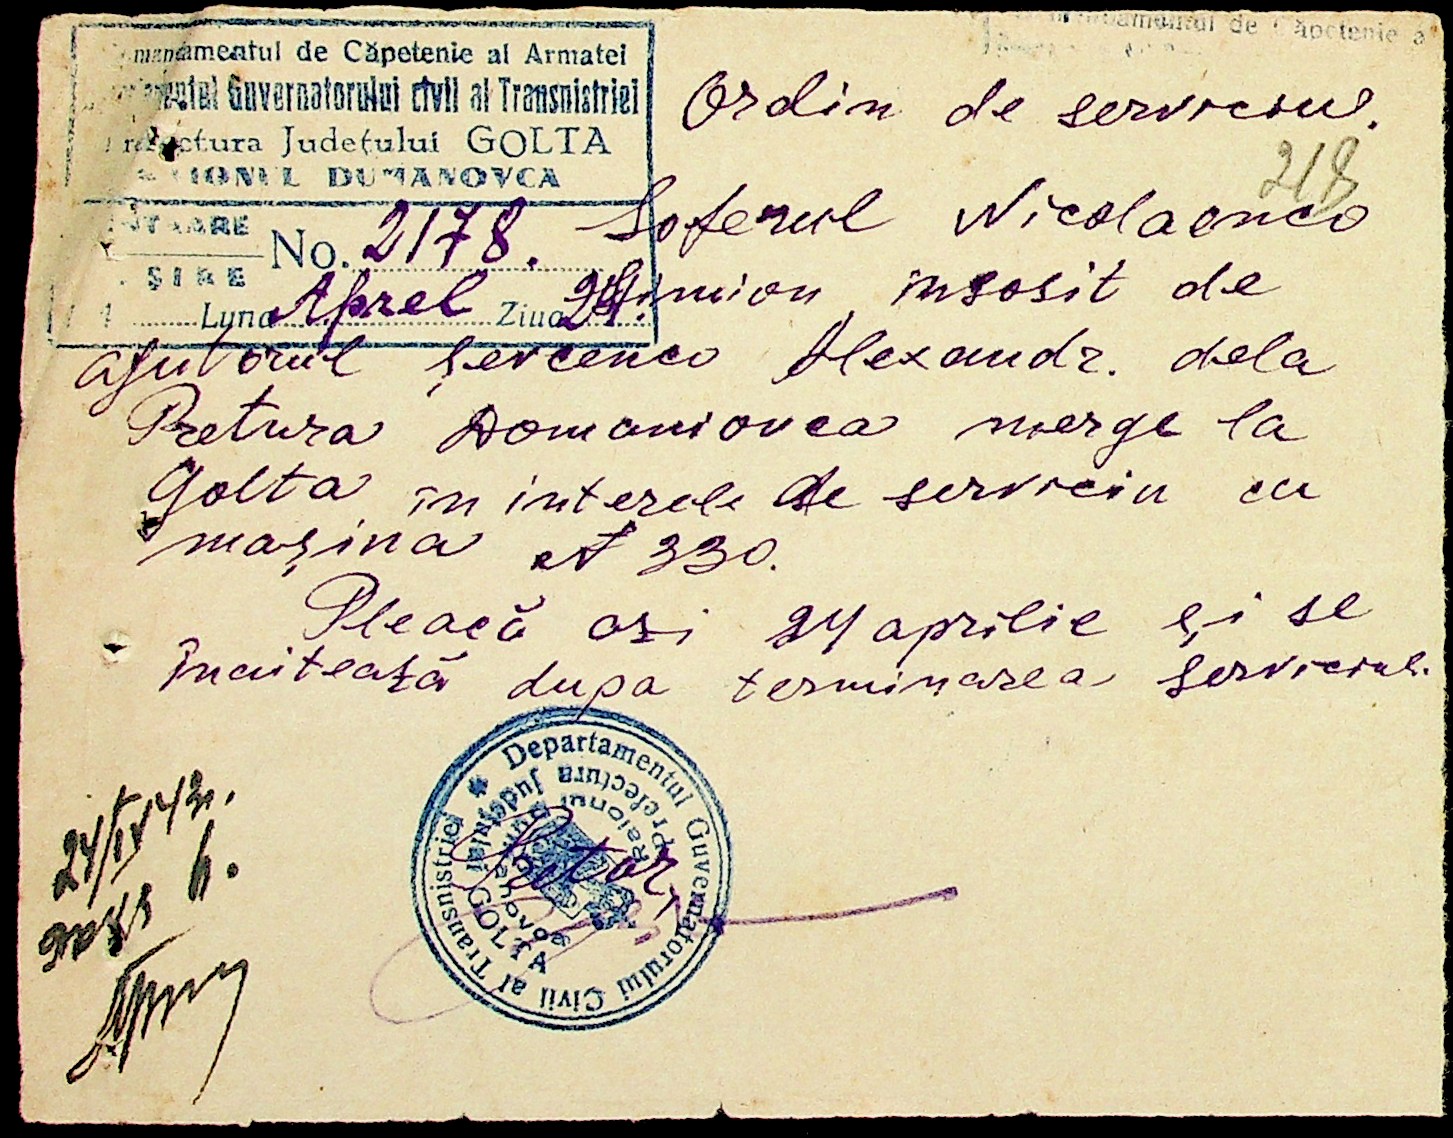 mandamentul de Căpetenie al Armatei
Guvernatorului civil al Transnistriei
Prefectura Județului GOLTA
RAIONUL DUMANOVCA
INTRARE
No. 2178.
EȘIRE
Luna Aprel Ziua 24.
Ordin de serviciu.
218
Soferul Nicolaenco
Simion însosit de
ajutorul Șevcenco Alexandr. dela
Pretura Domaniovca merge la
Golta în interele de serviciu cu
mașina N 330.
Pleacă azi 24 aprilie și se
înaitează dupa terminarea serviciul.
Pretor,
Departamentul Guvernatorului Civil al Transnistriei
Prefectura Județului GOLTA
Raionul Dumanovca
24/IV 42.